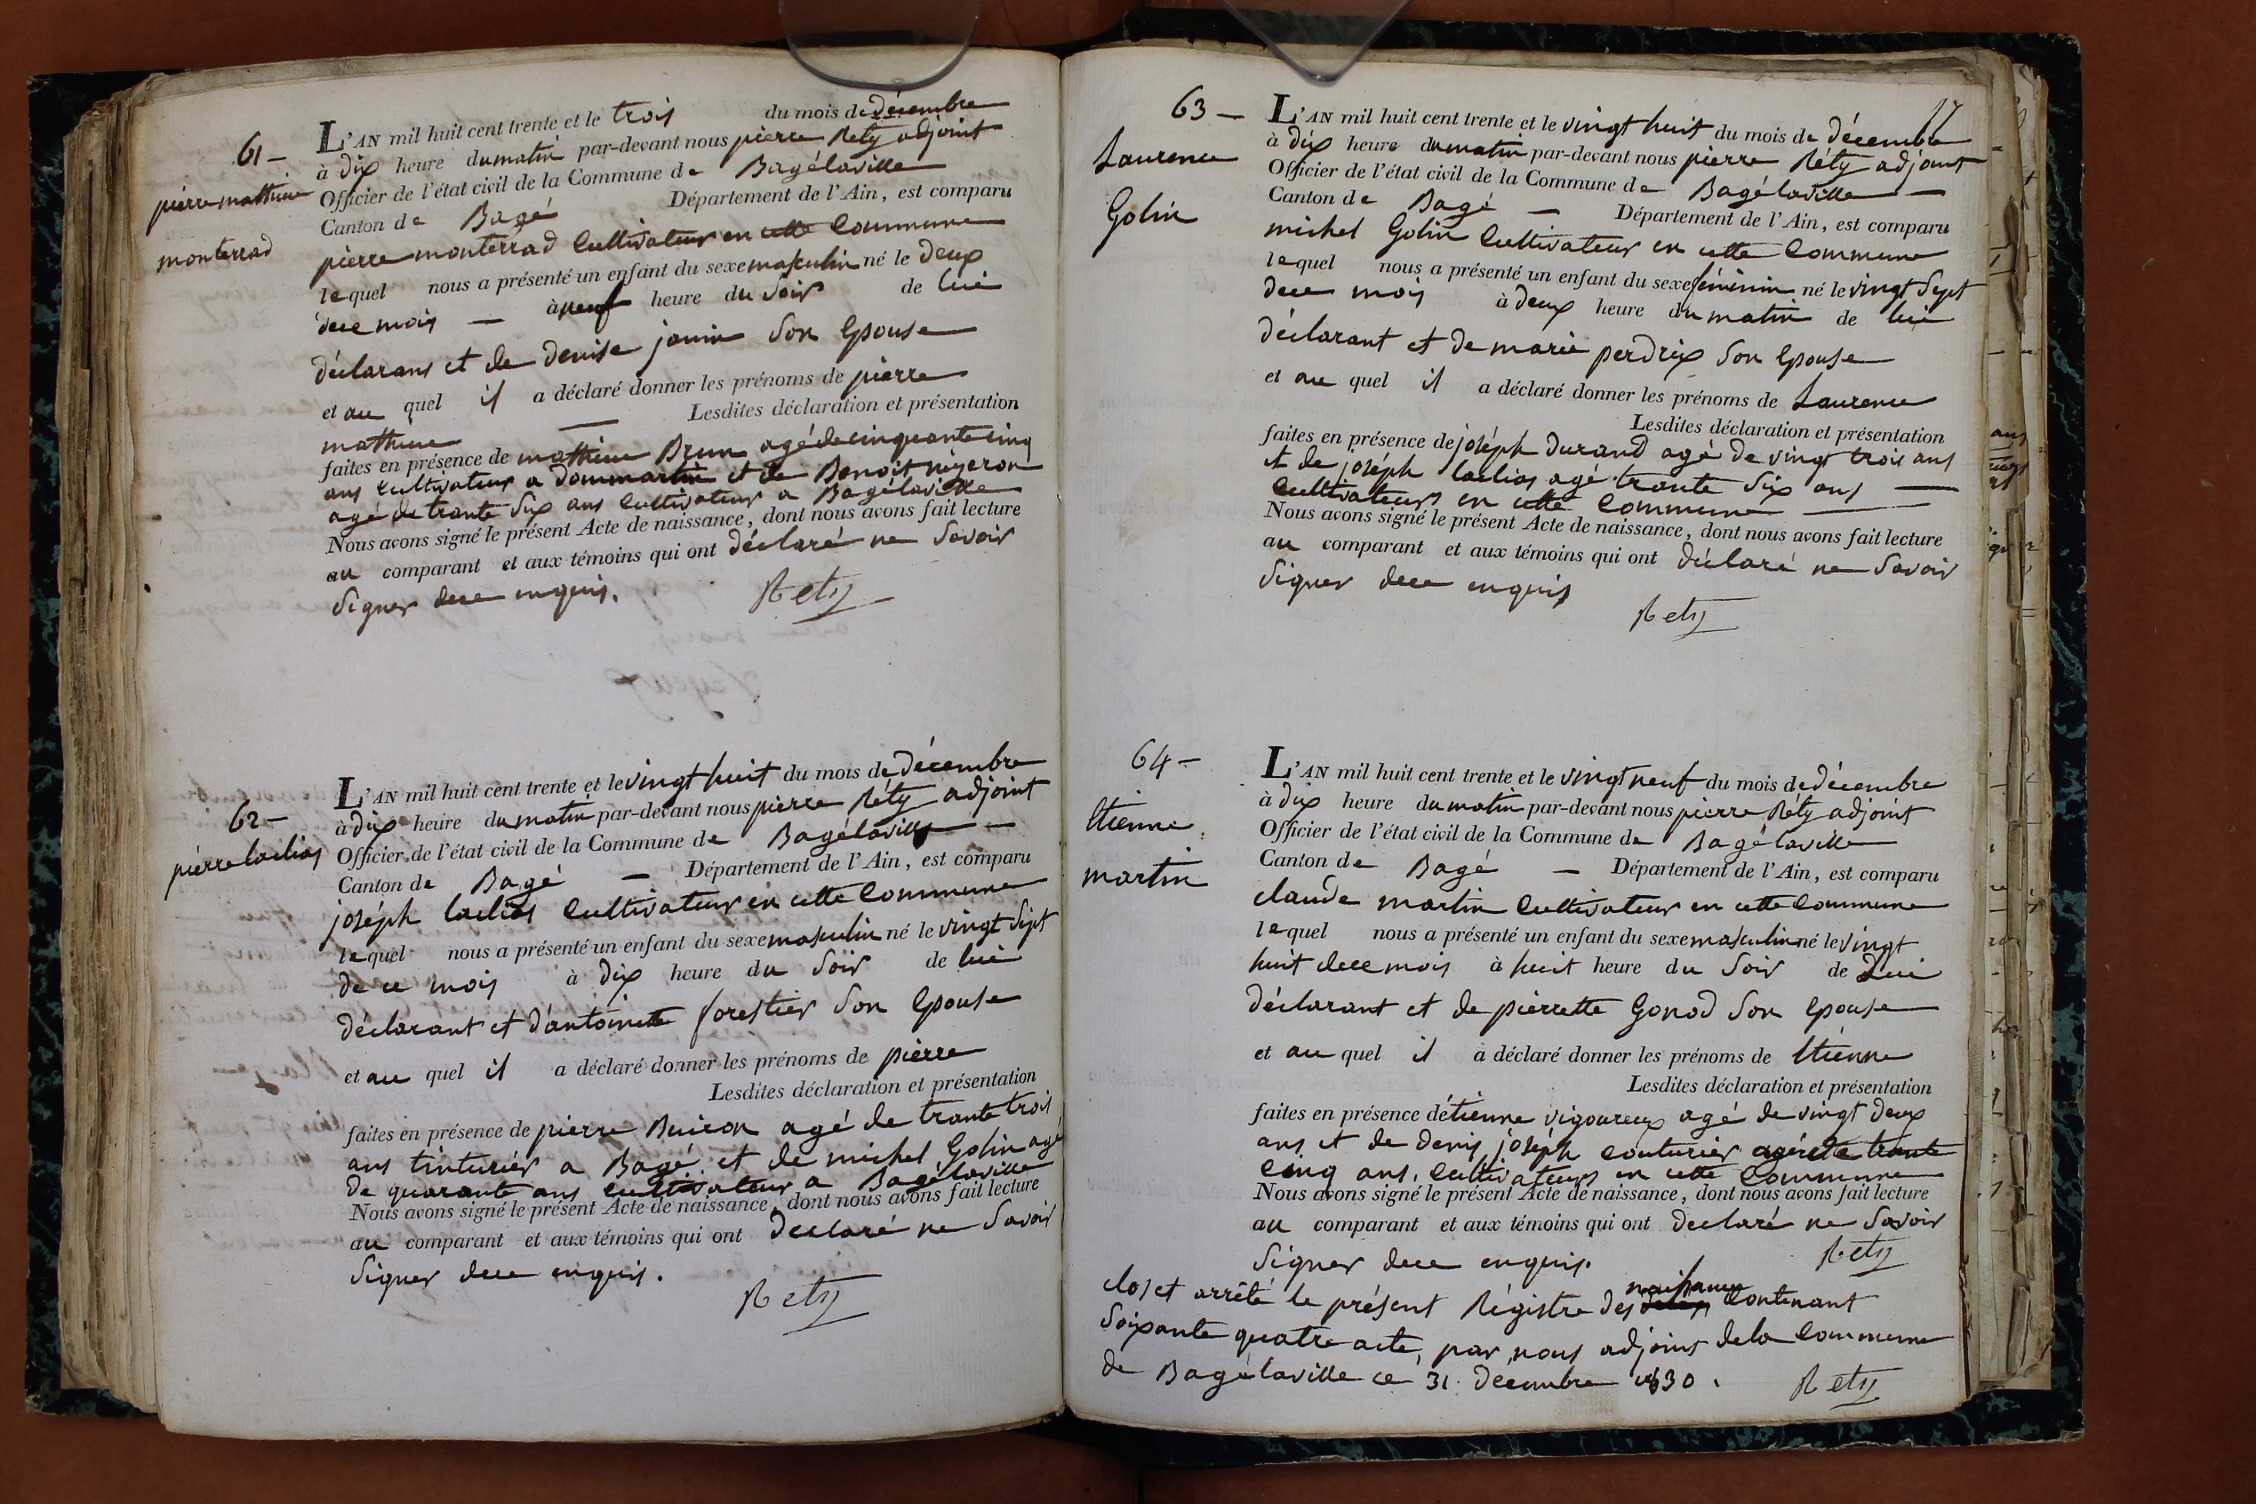 61 –
pierre mathieu
monterrad
L'AN mil huit cent trente et le trois du mois de décembre
à dix heure du matin par-devant nous pierre Réty adjoint
Officier de l'état civil de la Commune de Bagélaville
Canton de Bagé Département de l'Ain, est comparu
pierre monterrad Cultivateur en cette Commune
lequel nous a présenté un enfant du sexe masculin né le deux
de ce mois – à neuf heure du Soir de lui
déclarans et de denise janin Son Epouse
et au quel il a déclaré donner les prénoms de pierre
mathieu – Lesdites déclaration et présentation
faites en présence de mathieu Brun agé de cinquante cinq
ans Cultivateur a dommartin et de Benoit nigeron
agé de trante Six ans Cultivateur a Bagélaville
Nous avons signé le présent Acte de naissance, dont nous avons fait lecture
au comparant et aux témoins qui ont déclaré ne Savoir
Signer de ce enquis.
Rety
62 –
pierre loclias
L'AN mil huit cent trente et le vingt huit du mois de décembre
à dix heure du matin par-devant nous pierre Réty adjoint
Officier de l'état civil de la Commune de Bagélaville –
Canton de Bagé – Département de l'Ain, est comparu
joséph loclias Cultivateur en cette Commune
lequel nous a présenté un enfant du sexe masculin né le vingt Sept
de ce mois à dix heure du Soir de lui
déclarant et d'antoinette forestier Son Epouse
et au quel il a déclaré donner les prénoms de pierre
Lesdites déclaration et présentation
faites en présence de pierre Buiron agé de trante trois
ans tinturiér a Bagé et de michel Golin agé
de quarante ans Cultivateur a Bagélaville
Nous avons signé le présent Acte de naissance, dont nous avons fait lecture
au comparant et aux témoins qui ont declaré ne Savoir
Signer de ce enquis.
Rety
17
63 –
Laurence
Golin
L'AN mil huit cent trente et le vingt huit du mois de décembre
à dix heure du matin par-devant nous pierre Réty adjoint
Officier de l'état civil de la Commune de Bagélaville –
Canton de Bagé – Département de l'Ain, est comparu
michel Golin Cultivateur en cette Commune
lequel nous a présenté un enfant du sexe féminin né le vingt Sept
de ce mois à deux heure du matin de lui
déclarant et de marie perdrix Son Epouse
et au quel il a déclaré donner les prénoms de Laurence
Lesdites déclaration et présentation
faites en présence de joséph durand agé de vingt trois ans
et de joséph loclias agé trante Six ans –
Cultivateurs en cette Commune –
Nous avons signé le présent Acte de naissance, dont nous avons fait lecture
au comparant et aux témoins qui ont déclaré ne Savoir
Signer de ce enquis
Rety
64 –
Etienne
martin
L'AN mil huit cent trente et le vingt neuf du mois de décembre
à dix heure du matin par-devant nous pierre Réty adjoint
Officier de l'état civil de la Commune de Bagélaville
Canton de Bagé – Département de l'Ain, est comparu
claude martin Cultivateur en cette Commune
lequel nous a présenté un enfant du sexe masculin né le vingt
huit de ce mois à huit heure du Soir de Lui
déclarant et de pierrette Gonod Son Epouse
et au quel il a déclaré donner les prénoms de Etienne
Lesdites déclaration et présentation
faites en présence détienne vigoureux agé de vingt deux
ans et de denis joséph couturier agé de trante
Cinq ans, Cultivateurs en cette Commune
Nous avons signé le présent Acte de naissance, dont nous avons fait lecture
au comparant et aux témoins qui ont declaré ne Savoir
Signer de ce enquis.
Rety
clos et arrêté le présent Régistre des naissances Contenant
Soixante quatre acte, par nous adjoins de la Commune
de Bagélaville ce 31 décembre 1830.
Rety